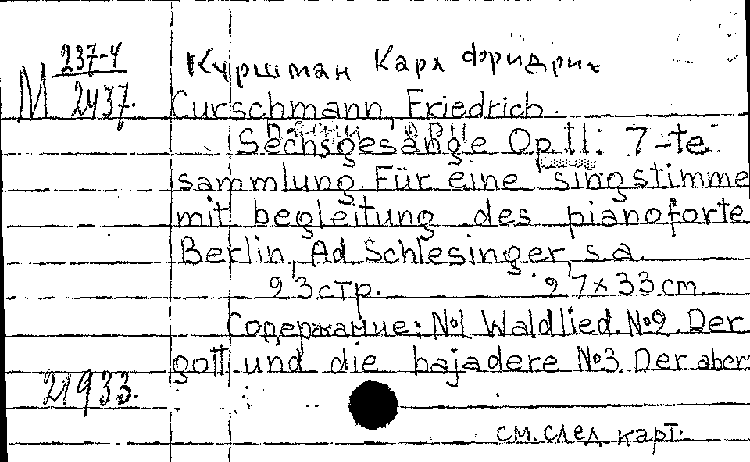 237-4
М 2437.
Куршман Карл Фридрих
Curschmann, Friedrich.
Sechsgesänge Op. 11: 7-te
sammlung Für eine singstimme
mit begleitung des pianoforte
Berlin, Ad Schlesinger, s.a.
23 стр. 27 x 33 cm.
Содержание: №1 Waldlied. №2. Der
gott und die bajadere №3. Der aber:
21933.
см. след карт.